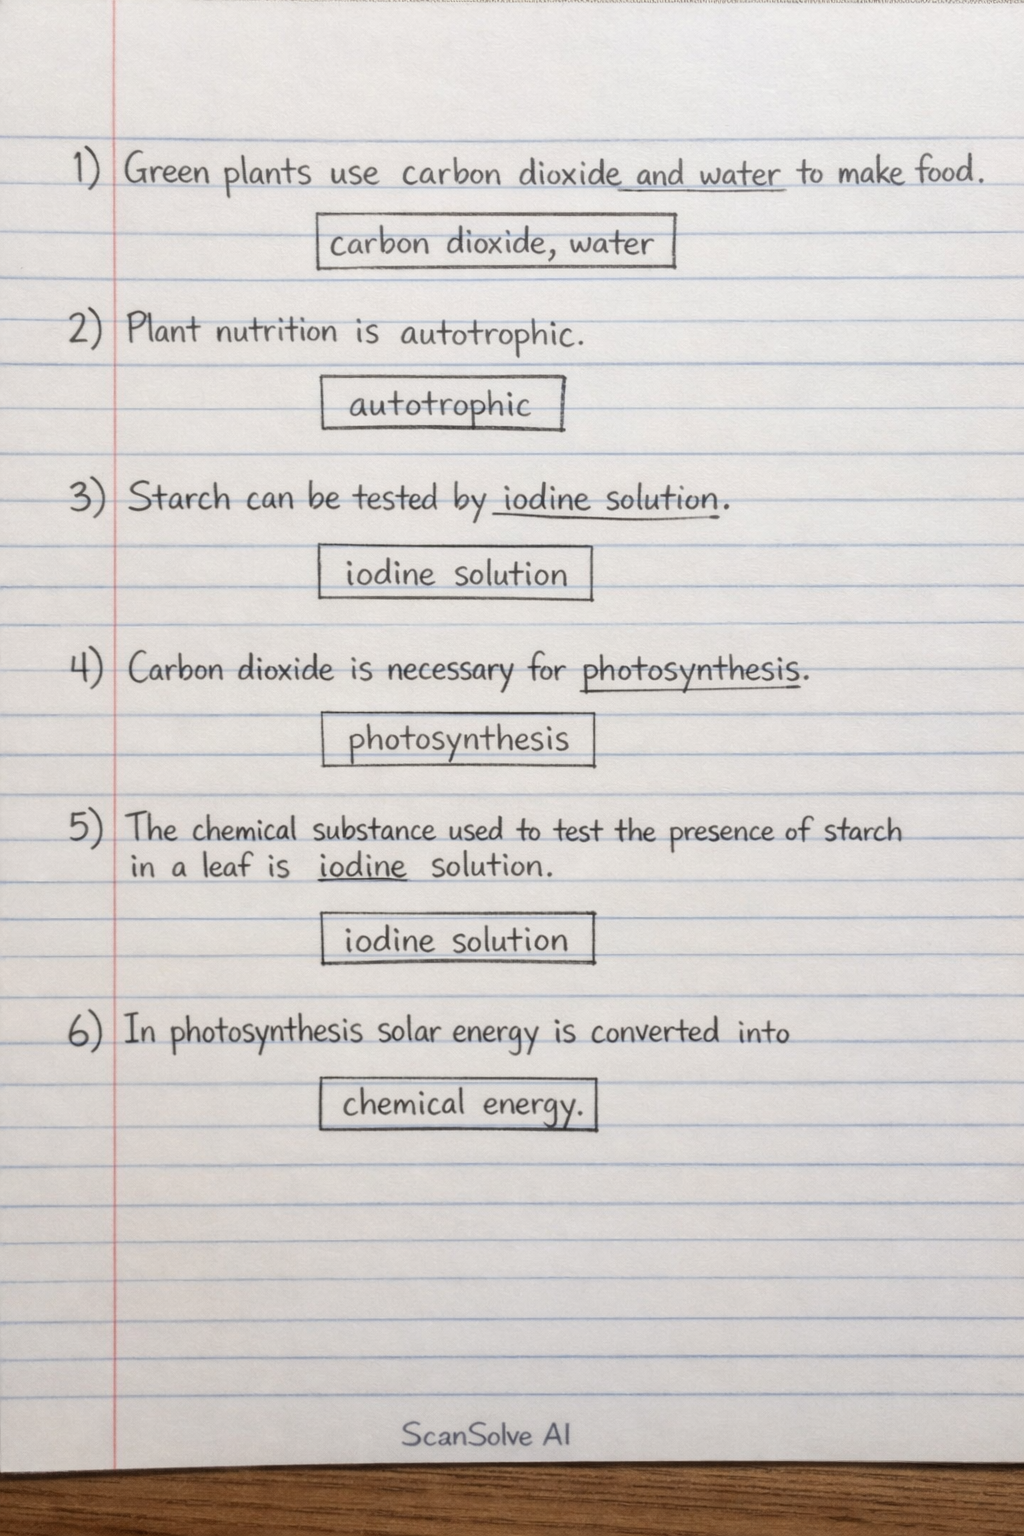 1) Green plants use carbon dioxide and water to make food.
carbon dioxide, water
2) Plant nutrition is autotrophic.
autotrophic
3) Starch can be tested by iodine solution.
iodine solution
4) Carbon dioxide is necessary for photosynthesis.
photosynthesis
5) The chemical substance used to test the presence of starch
in a leaf is iodine solution.
iodine solution
6) In photosynthesis solar energy is converted into
chemical energy.
ScanSolve AI